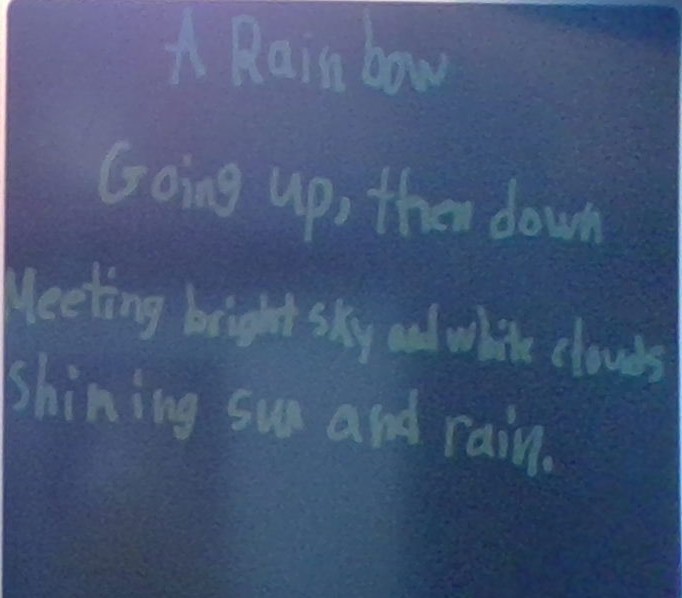 A Rainbow
Going up, then down
Meeting bright sky and white clouds
Shining sun and rain.